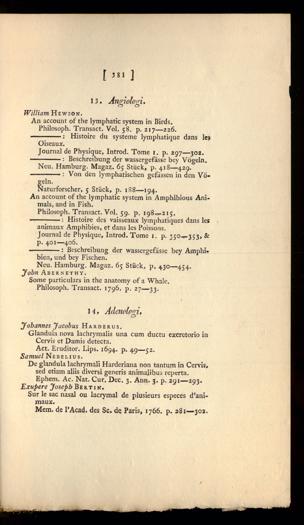 [ 381 ]
13. Angiologi.
William HEWSON.
An account of the lymphatic system in Birds.
Philosoph. Transact. Vol. 58. p. 217—226.
———: Histoire du systeme lymphatique dans les
Oiseaux.
Journal de Physique, Introd. Tome 1. p. 297—302.
———: Beschreibung der wassergefässe bey Vögeln.
Neu. Hamburg. Magaz. 65 Stück, p. 418—429.
———: Von den lymphatischen gefässen in den Vö-
geln.
Naturforscher, 5 Stück, p. 188—194.
An account of the lymphatic system in Amphibious Ani-
mals, and in Fish.
Philosoph. Transact. Vol. 59. p. 198—215.
———: Histoire des vaisseaux lymphatiques dans les
animaux Amphibies, et dans les Poissons.
Journal de Physique, Introd. Tome 1. p. 350—353, &
p. 401—406.
———: Beschreibung der wassergefässe bey Amphi-
bien, und bey Fischen.
Neu. Hamburg. Magaz. 65 Stück, p. 430—454.
John ABERNETHY.
Some particulars in the anatomy of a Whale.
Philosoph. Transact. 1796. p. 27—33.
14. Adenologi.
Johannes Jacobus HARDERUS.
Glandula nova lachrymalis una cum ductu excretorio in
Cervis et Damis detecta.
Act. Eruditor. Lips. 1694. p. 49—52.
Samuel NEBELIUS.
De glandula lachrymali Harderiana non tantum in Cervis,
sed etiam aliis diversi generis animalibus reperta.
Ephem. Ac. Nat. Cur. Dec. 3. Ann. 3. p. 291—293.
Exupere Joseph BERTIN.
Sur le sac nasal ou lacrymal de plusieurs especes d'ani-
maux.
Mem. de l'Acad. des Sc. de Paris, 1766. p. 281—302.